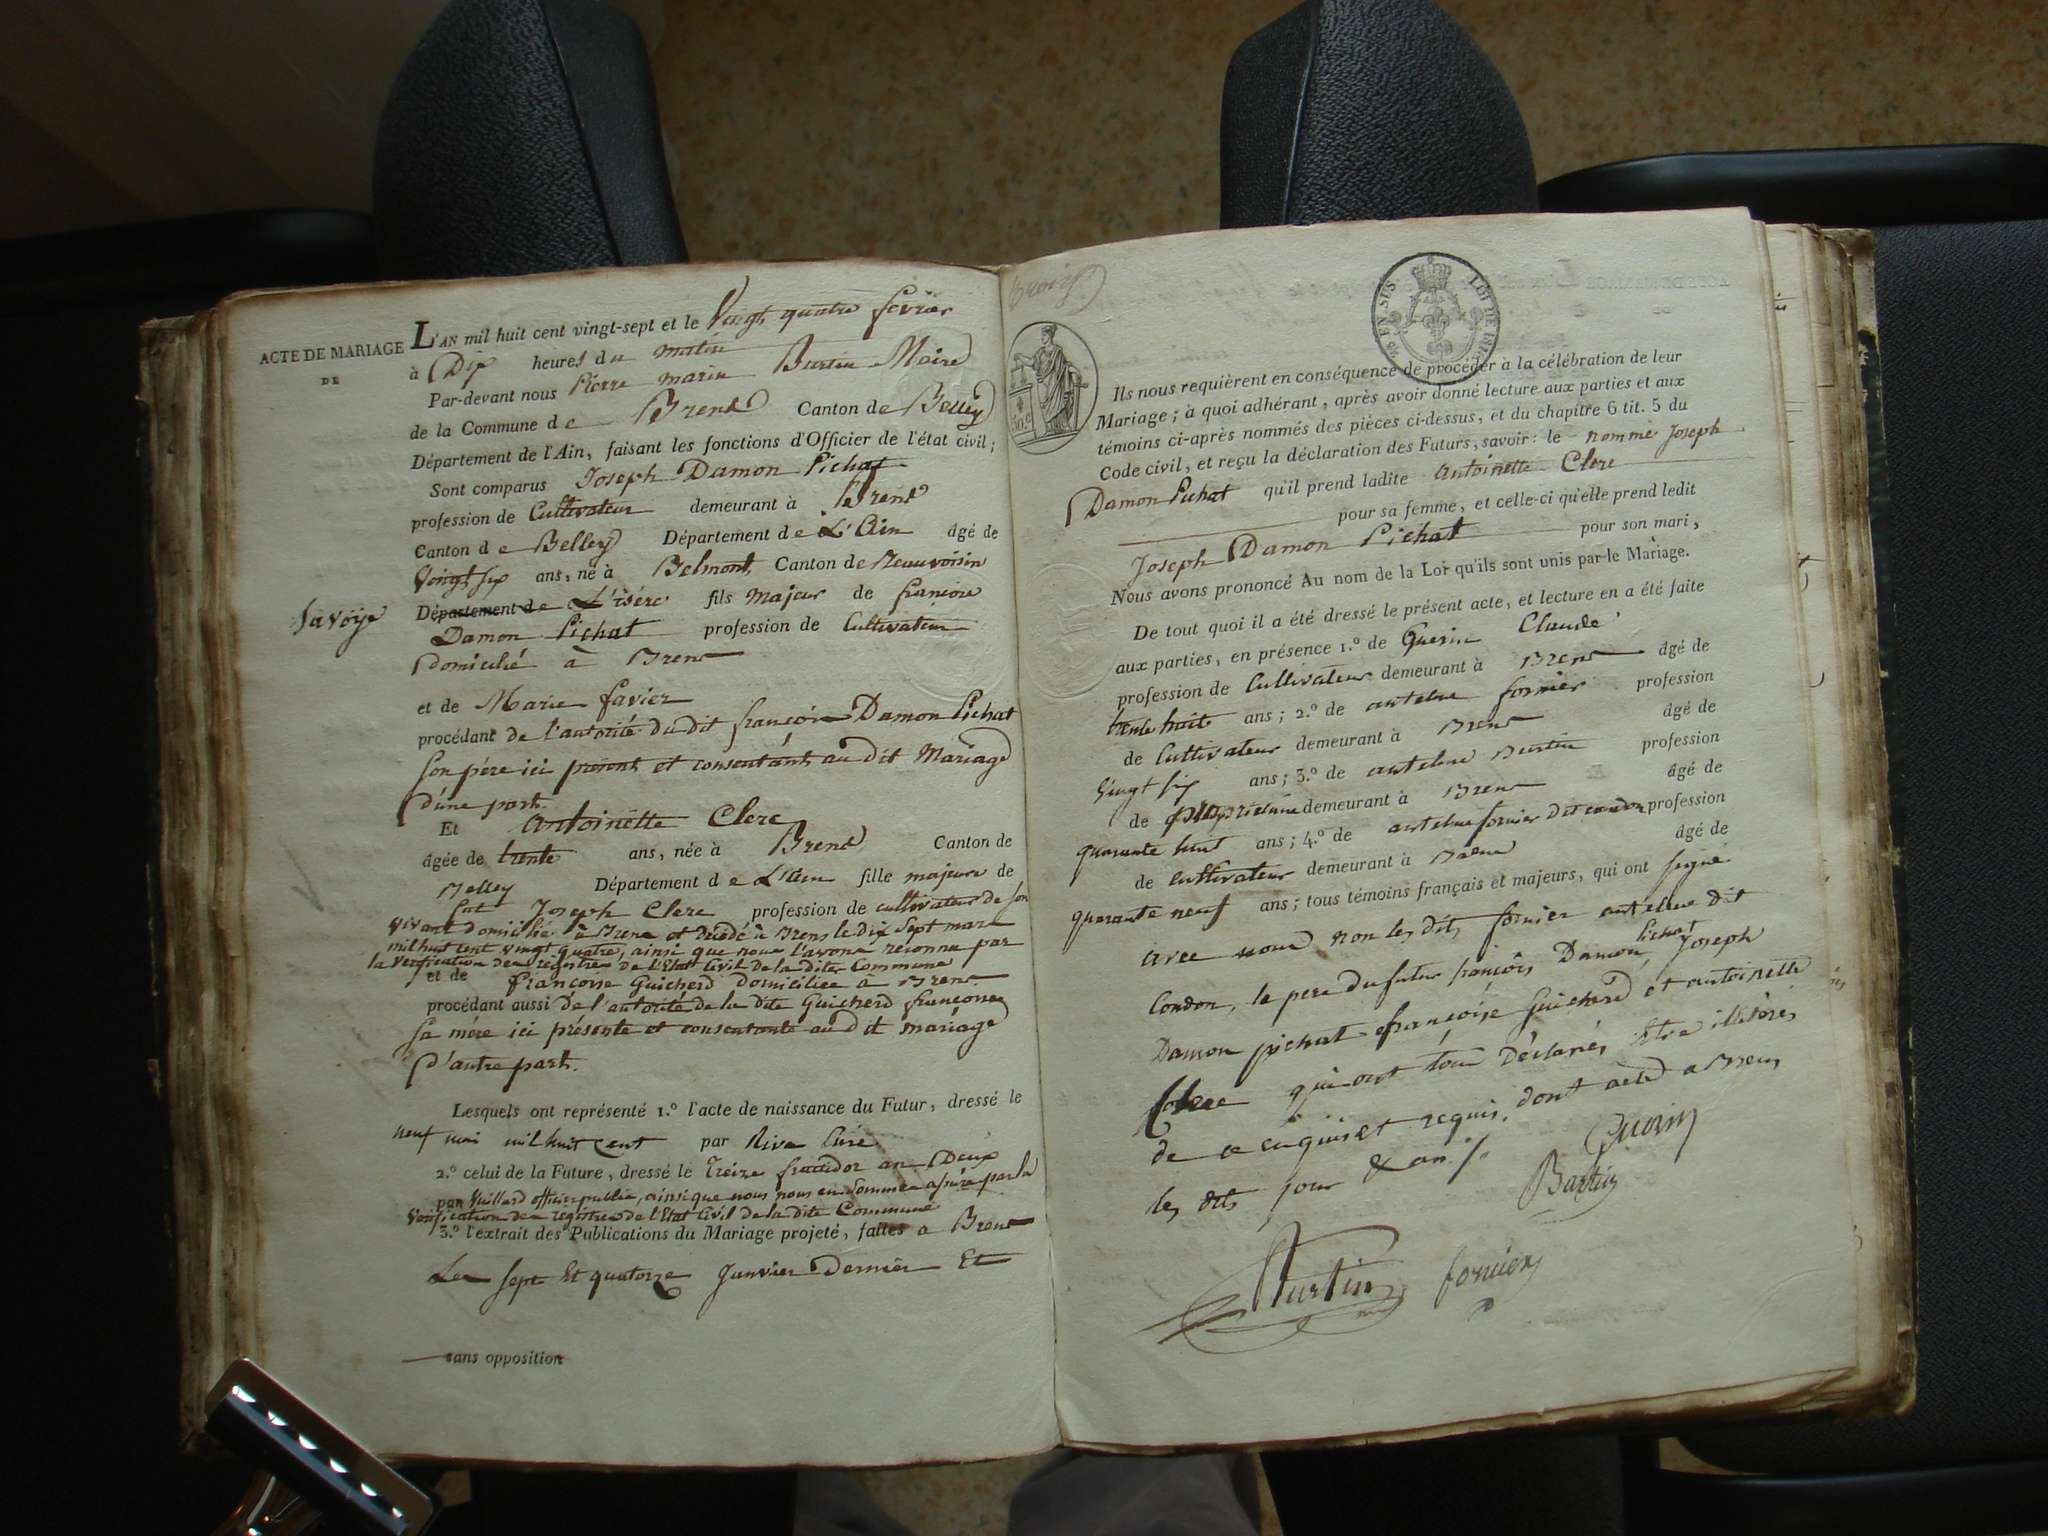 ACTE DE MARIAGE
DE
L'AN mil huit cent vingt-sept et le Vingt quatre fevrier
à Dix heures du matin
Par-devant nous Pierre marin Burtin Maire
de la Commune de Brens Canton de Belley
Département de l'Ain, faisant les fonctions d'Officier de l'état civil;
Sont comparus Joseph Damon Pichat
profession de Cultivateur demeurant à Brens
Canton de Belley Département de L'Ain âgé de
Vingt six ans, né à Belmont Canton de
Savoÿe
Département de L'isére fils majeur de françois
Damon Pichat profession de Cultivateur
domicilié à Brens
et de Marie favier
procédant de l'autorité du dit françois Damon Pichat
son père ici présent et consentant au dit Mariage
d'une part.
Et Antoinette Clerc
âgée de trente ans, née à Brens Canton de
Belley Département de L'Ain fille majeure de
Joseph Clerc profession de cultivateur de son
vivant domicilié à Brens et décédé à Brens le Dix Sept mars
mil huit cent vingt quatre, ainsi que nous l'avons reconnu par
la verification des régistres de l'Etat Civil de la dite Commune
et de françoise Guicherd domiciliée à Brens
procédant aussi de l'autorité de la dite Guicherd françoise
sa mére ici présente et consentante au dit mariage
d'autre part.
Lesquels ont représenté 1.º l'acte de naissance du Futur, dressé le
neuf mai mil huit cent par Rive Curé
2.º celui de la Future, dressé le Treize an Deux
par Vuillard officier public, ainsi que nous nous en sommes assuré par la
Verification des registres de l'Etat Civil de la dite Commune
3.º l'extrait des Publications du Mariage projeté, faites a Brens
Les sept Et quatorze Janvier Dernier Et
sans opposition
50 c
LOI DE 181
Ils nous requièrent en conséquence de procéder à la célébration de leur
Mariage; à quoi adhérant, après avoir donné lecture aux parties et aux
témoins ci-après nommés des pièces ci-dessus, et du chapitre 6 tit. 5 du
Code civil, et reçu la déclaration des Futurs, savoir: le nommé Joseph
Damon Pichat qu'il prend ladite Antoinette Clerc
pour sa femme, et celle-ci qu'elle prend ledit
Joseph Damon Pichat pour son mari,
Nous avons prononcé Au nom de la Loi qu'ils sont unis par le Mariage.
De tout quoi il a été dressé le présent acte, et lecture en a été faite
aux parties, en présence 1.º de Guerin Claude
profession de Cultivateur demeurant à Brens âgé de
trente huit ans; 2.º de antelme fornier profession
de Cultivateur demeurant à Brens âgé de
Vingt six ans; 3.º de antelme Burtin profession
de propriétaire demeurant à Brens âgé de
quarante huit ans; 4.º de antelme fornier dit condon profession
de Cultivateur demeurant à Brens âgé de
quarante neuf ans; tous témoins français et majeurs, qui ont signé
avec nous non les dits fornier antelme dit
Condon, le pere du futur françois Damon pichat, Joseph
Damon pichat françoise Guicherd et antoinette
Clerc qui ont tous déclarés Etre illiterés
de ce enquis et requis, dont acte a Brens
les dits jour & an
Guerin
Burtin
Burtin
fornier